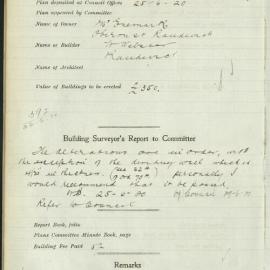 Plan deposited at Council Offices 25-6-20
Plan approved by Committee
Name of Owner Mr Fremark
Oberon St Randwick
Name of Builder W Webster
Randwick
Name of Architect
Value of Buildings to be erected £ 350.
Building Surveyor's Report to Committee
The alterations are in order, with
the exception of the dividing wall which is
4½ in thickness. personally I
would recommend that to be passed
25-6-20
Refer to Council
Report Book, folio
Plans Committee Minute Book, page
Building Fee Paid
Remarks